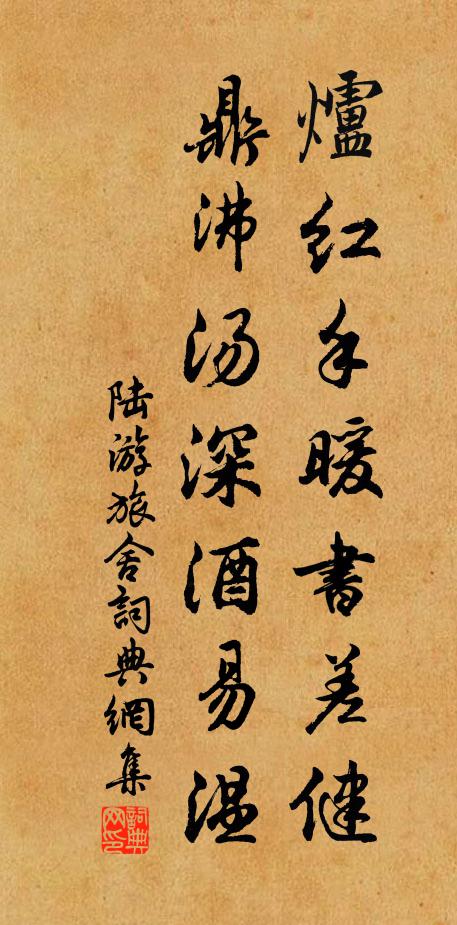 爐红手暖書差健
鼎沸汤深酒易温
陆游旅舍詞典網集
詞典网印